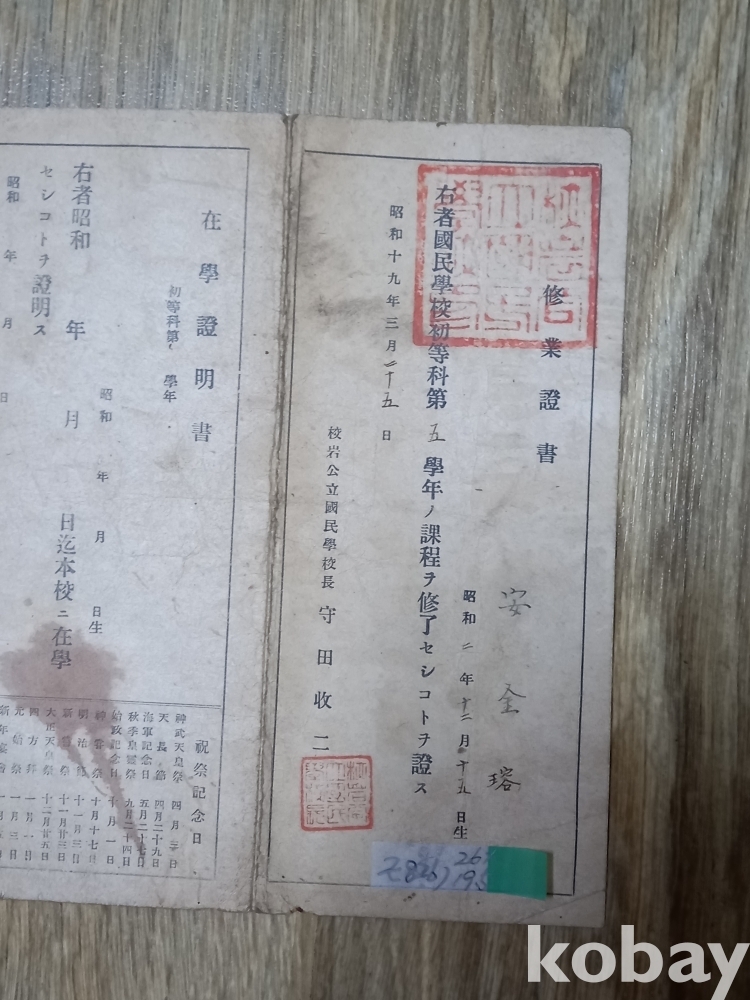 修業證書
安金瑢
昭和二年十二月十五日生
右者國民學校初等科第五學年ノ課程ヲ修了セシコトヲ證ス
昭和十九年三月二十五日
校岩公立國民學校長 守田收二
在學證明書
初等科第 學年
昭和 年 月 日生
右者昭和 年 月 日迄本校ニ在學
セシコトヲ證明ス
昭和 年 月 日
祝祭記念日
神武天皇祭 四月三日
天長節 四月二十九日
海軍記念日 五月二十七日
秋季皇靈祭 九月二十四日
始政記念日 十月一日
神嘗祭 十月十七日
明治節 十一月三日
新嘗祭 十一月廿三日
大正天皇祭 十二月廿五日
四方拜 一月一日
元始祭 一月三日
新年宴會 一月五日
kobay